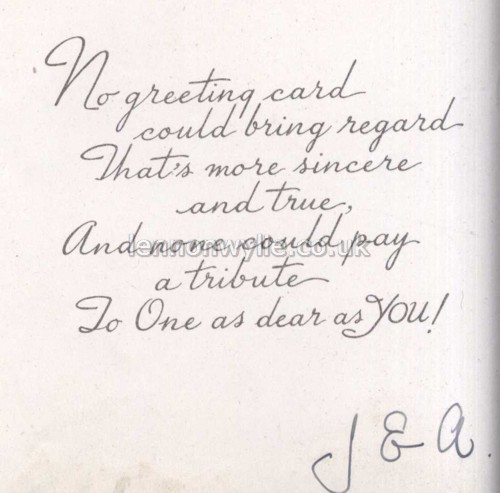 No greeting card
could bring regard
That's more sincere
and true,
And none could pay
lennonwylie.co.uk
a tribute
To One as dear as YOU!
J & A.